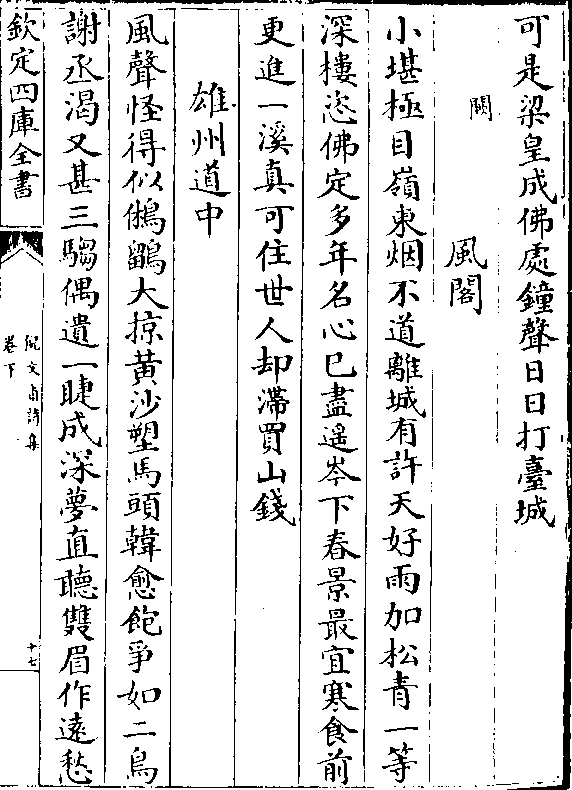 可是梁皇成佛處鐘聲日日打臺城
闕　風閣
小堪極目嶺東烟不道離城有許天好雨加松青一等
深樓恣佛定多年名心已盡遥岑下春景最宜寒食前
更進一溪真可住世人却滯買山錢
雄州道中
風聲怪得似鵂鶹大掠黄沙塑馬頭韓愈飽爭如二鳥
謝丞渴又甚三騶偶遺一睫成深夢直聽雙眉作遠愁
欽定四庫全書
阮文甫詩集
卷下
十七